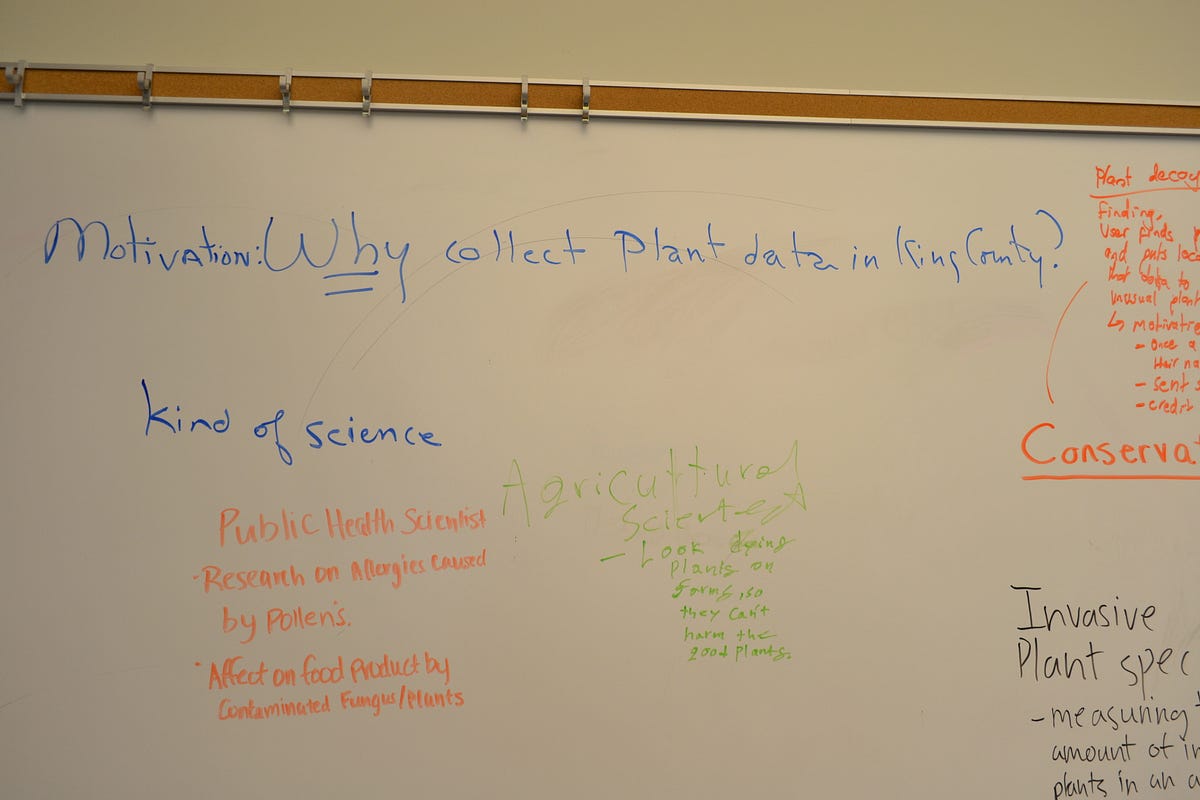 Motivation: Why collect Plant data in King County?
kind of science
Public Health Scientist
· Research on Allergies caused
by Pollen's.
· Affect on food Product by
Contaminated Fungus/Plants
Agricultural
Scientest
- Look dying
plants on
farms, so
they can't
harm the
good plants.
Plant decay
Finding,
User finds
and puts loc
that data to
unusual plant
↳ motivatio
- once a
their na
- sent s
- credit
Conservat
Invasive
Plant spec
- measuring t
amount of in
plants in an a